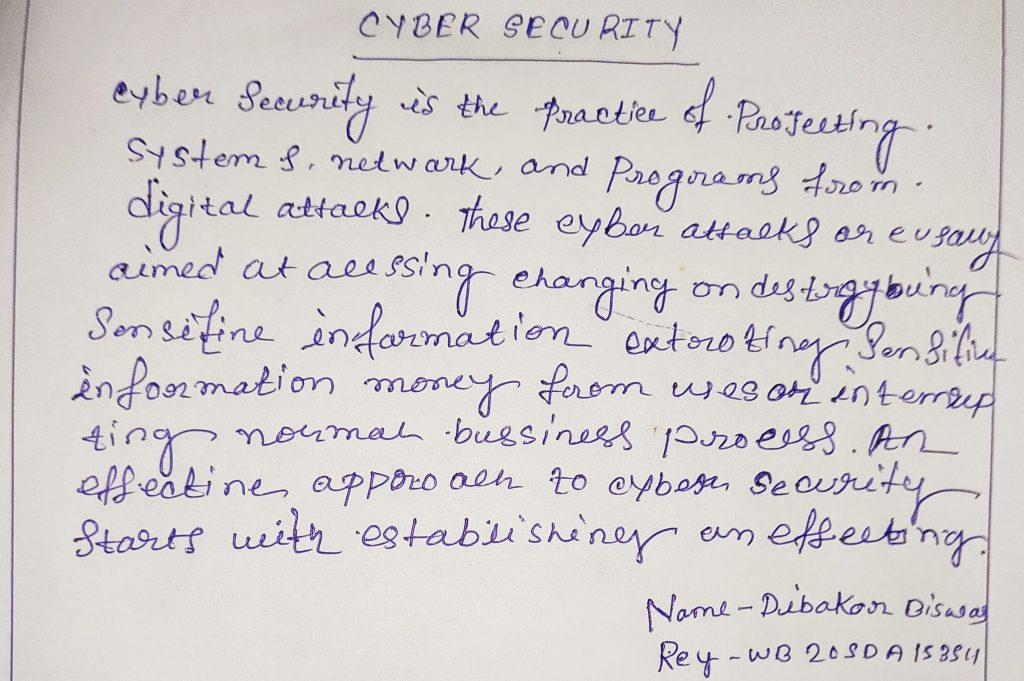 CYBER SECURITY
cyber Security is the Practice of Protecting.
Systems, network, and Programs from.
digital attacks. These cyber attacks are usauly
aimed at acessing changing or destroying
Sensitine information extroting Sensitive
information money from uses or interrup
ting normal bussiness process. An
effective approach to cyber Security
Starts with establishing an effecting.
Name - Dibakar Biswas
Rey - WB 20SDA15354